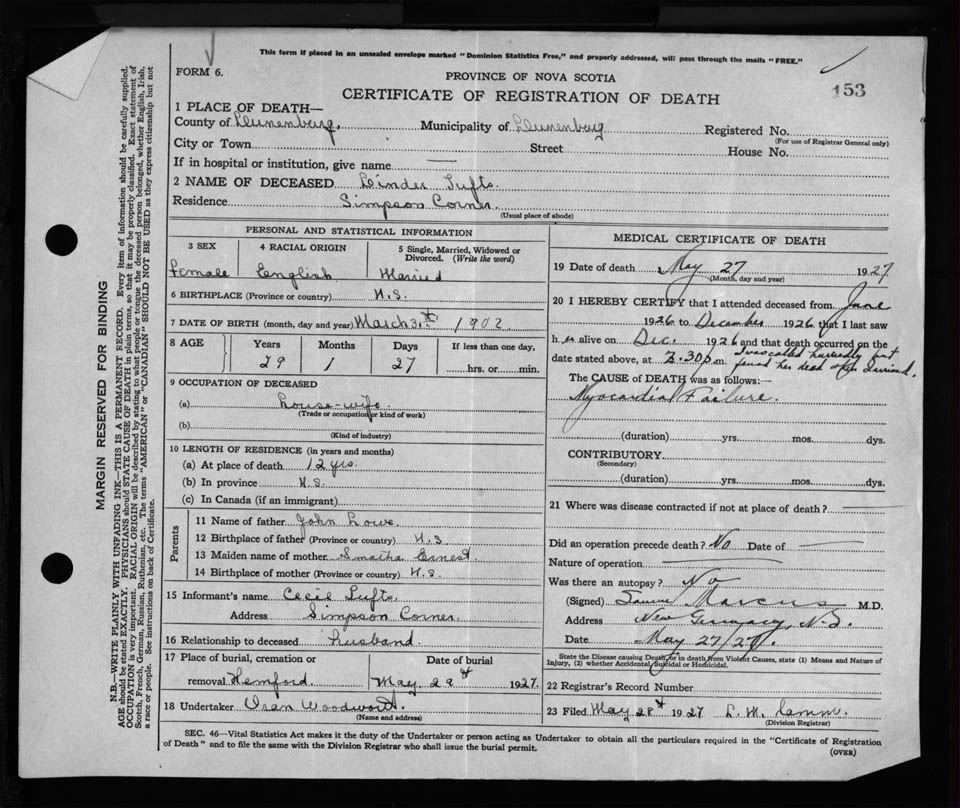 This form if placed in an unsealed envelope marked "Dominion Statistics Free," and properly addressed, will pass through the mails "FREE."
FORM 6.
PROVINCE OF NOVA SCOTIA
153
CERTIFICATE OF REGISTRATION OF DEATH
1 PLACE OF DEATH—
County of Lunenburg, Municipality of Lunenburg Registered No.
(For use of Registrar General only)
City or Town Street House No.
If in hospital or institution, give name —
2 NAME OF DECEASED Linder Tufts.
Residence Simpson Corner.
(Usual place of abode)
PERSONAL AND STATISTICAL INFORMATION
3 SEX 4 RACIAL ORIGIN 5 Single, Married, Widowed or Divorced. (Write the word)
Female English Married
6 BIRTHPLACE (Province or country) N.S.
7 DATE OF BIRTH (month, day and year) March 1902
8 AGE Years Months Days If less than one day,
29 1 27 hrs. or min.
9 OCCUPATION OF DECEASED
(a) house-wife.
(Trade or occupation or kind of work)
(b)
(Kind of industry)
10 LENGTH OF RESIDENCE (in years and months)
(a) At place of death 12 yrs.
(b) In province N.S.
(c) In Canada (if an immigrant)
Parents
11 Name of father John Lowe
12 Birthplace of father (Province or country) N.S
13 Maiden name of mother Ernest.
14 Birthplace of mother (Province or country) N.S.
15 Informant's name Cecil Tufts
Address Simpson Corner
16 Relationship to deceased husband.
17 Place of burial, cremation or Date of burial
removal Hemford. May 29th 1927.
18 Undertaker Woodworth.
(Name and address)
MEDICAL CERTIFICATE OF DEATH
19 Date of death May 27 1927
(Month, day and year)
20 I HEREBY CERTIFY that I attended deceased from June
1926 to December 1926 that I last saw
her alive on Dec. 1926 and that death occurred on the
date stated above, at 2.30 p.m. I was called hurriedly but
found her dead when I arrived.
The CAUSE of DEATH was as follows:—
Myocardial Failure.
(duration) yrs. mos. dys.
CONTRIBUTORY
(Secondary)
(duration) yrs. mos. dys.
21 Where was disease contracted if not at place of death? —
Did an operation precede death? No Date of —
Nature of operation —
Was there an autopsy? No
(Signed) Marcus M.D.
Address New Germany, N.S.
Date May 27/27.
State the Disease causing Death, or in death from Violent Causes, state (1) Means and Nature of
Injury, (2) whether Accidental, Suicidal or Homicidal.
22 Registrar's Record Number
23 Filed May 28th 1927 L. M.
(Division Registrar)
SEC. 46—Vital Statistics Act makes it the duty of the Undertaker or person acting as Undertaker to obtain all the particulars required in the "Certificate of Registration
of Death" and to file the same with the Division Registrar who shall issue the burial permit.
(OVER)
MARGIN RESERVED FOR BINDING
N.B.—WRITE PLAINLY WITH UNFADING INK—THIS IS A PERMANENT RECORD. Every item of information should be carefully supplied.
AGE should be stated EXACTLY. PHYSICIANS should STATE CAUSE OF DEATH in plain terms, so that it may be properly classified. Exact statement of
OCCUPATION is very important. RACIAL ORIGIN will be described by stating to what people or tongue the deceased person belonged, whether English, Irish,
Scotch, French, German, Russian, Ruthenian, etc. The terms "AMERICAN" or "CANADIAN" SHOULD NOT BE USED as they express citizenship but not
a race or people. See instructions on back of Certificate.